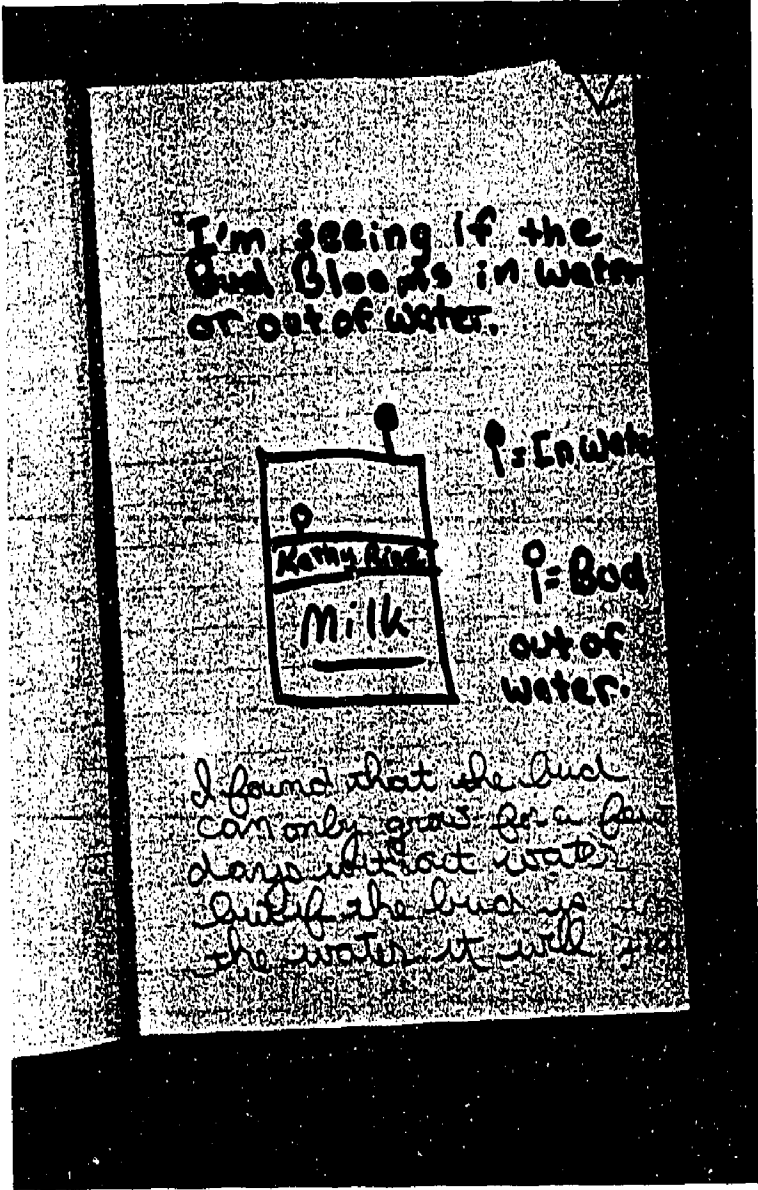 I'm seeing if the
Bud Blooms in water
or out of water.
= In Wate
Kathy
= Bud
Milk
out of
water.
I found that the bud
can only grow for a few
days without water
but if the bud is
the water it will